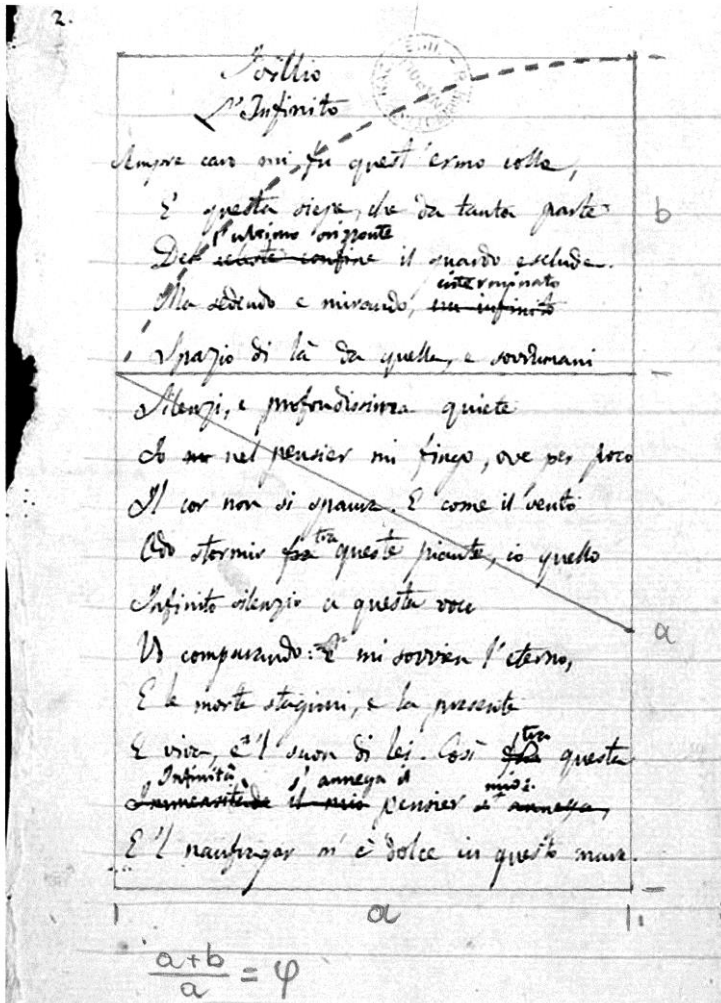 2.
Idillio
L'Infinito
Sempre caro mi fu quest'ermo colle,
E questa siepe, che da tanta parte
l'ultimo orizzonte
Del celeste confine il guardo esclude.
interminato
Ma sedendo e mirando, un infinito
Spazio di là da quella, e sovrumani
b
Silenzi, e profondissima quiete
Io nel pensier mi fingo, ove per poco
Il cor non si spaura. E come il vento
tra
Odo stormir fra queste piante, io quello
Infinito silenzio a questa voce
a
Vo comparando: E mi sovvien l'eterno,
E le morte stagioni, e la presente
tra
E viva, e 'l suon di lei. Così fra questa
Infinità s'annega il mio:
Immensitade il mio pensier s'annega,
E 'l naufragar m'è dolce in questo mare.
a
a+b
a
= φ